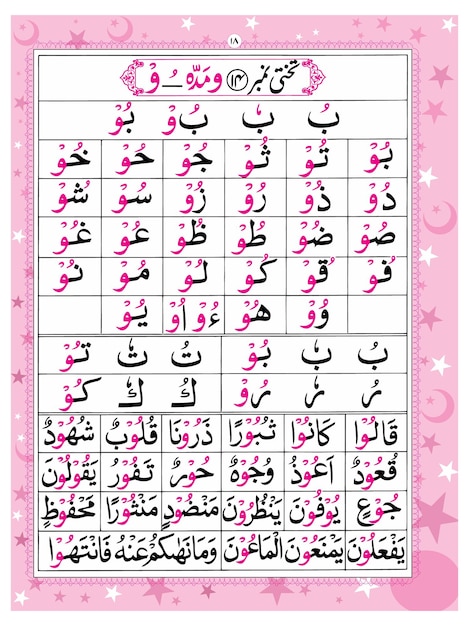 ۱۸
تختی نمبر ۱۴ و مدّہ ـُ وْ
بُ بٗ بُ وْ بُوْ
بُوْ تُوْ ثُوْ جُوْ حُوْ خُوْ
دُوْ ذُوْ رُوْ زُوْ سُوْ شُوْ
صُوْ ضُوْ طُوْ ظُوْ عُوْ غُوْ
فُوْ قُوْ كُوْ لُوْ مُوْ نُوْ
وُوْ هُوْ ءُوْ اُوْ يُوْ
بُ بٗ بُوْ تُ تٗ تُوْ
رُ رٗ رُوْ كُ كٗ كُوْ
قَالُوْا كَانُوْا ثُبُوْرًا ذَرُوْنَا قُلُوْبٌ شُهُوْدٌ
قُعُوْدٌ اَعُوْذُ وُجُوْهٌ حُوْرٌ تَفُوْرُ يَقُوْلُوْنَ
جُوْعٍ يُوْفُوْنَ يَنْظُرُوْنَ مَنْضُوْدٍ مَنْثُوْرًا مَحْفُوْظٍ
يَفْعَلُوْنَ يَمْنَعُوْنَ الْمَاعُوْنَ وَمَا نَهٰىكُمْ عَنْهُ فَانْتَهُوْا